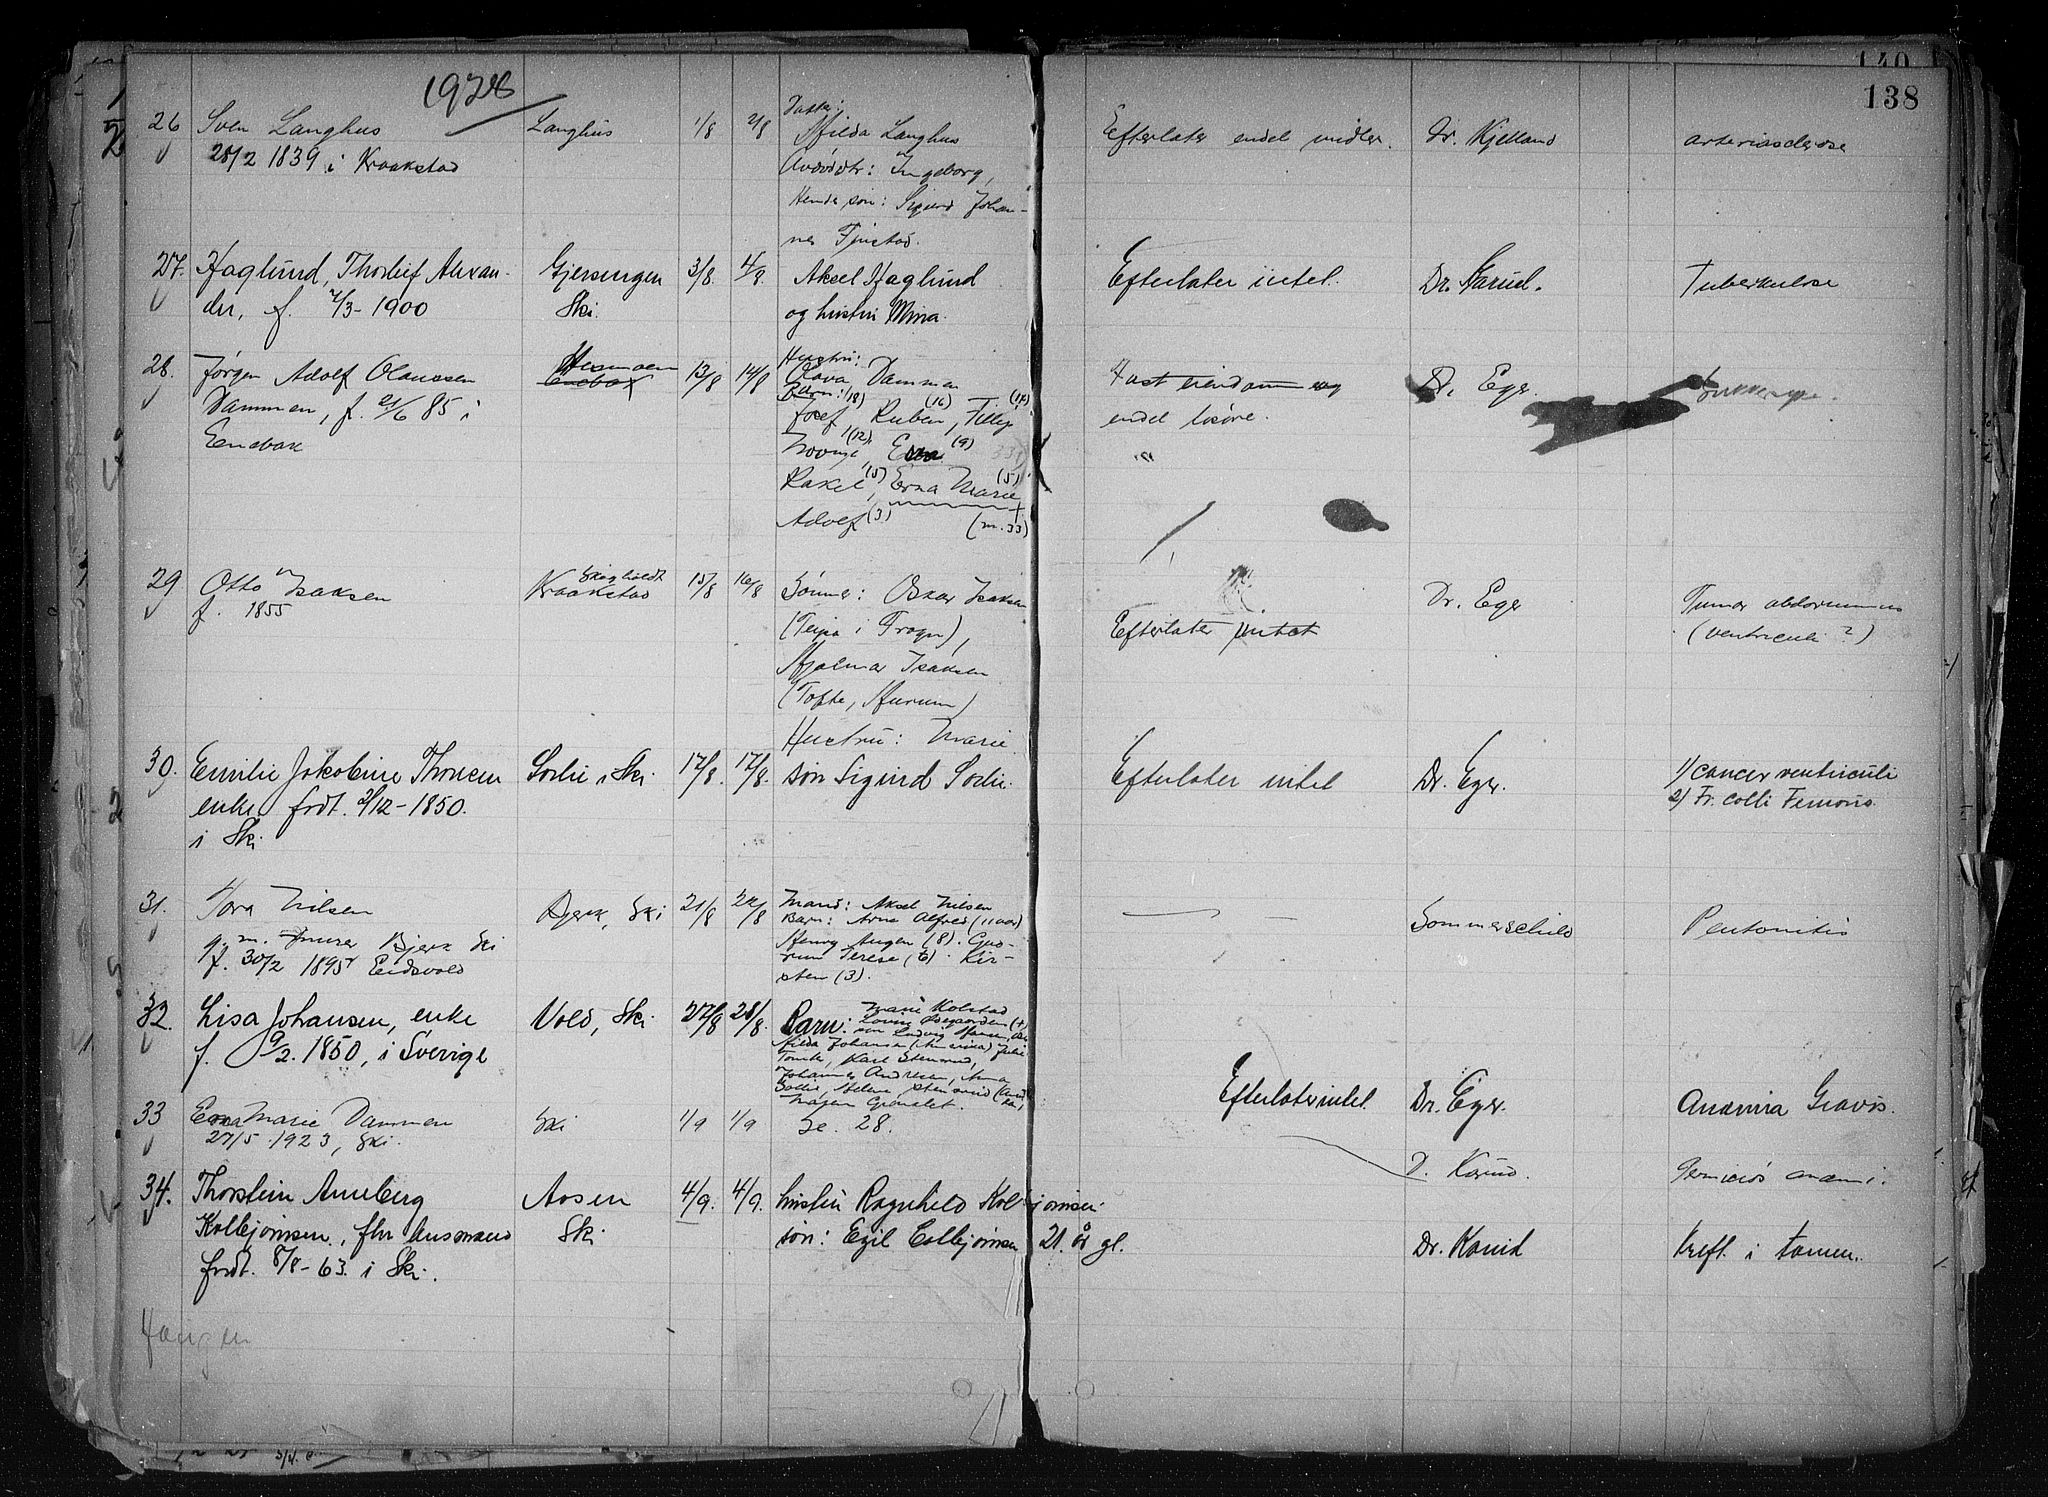 1928
140
138
26 Sven Langhus Langhus 1/8 2/8 Datter:
Hilda Langhus Efterlater endel midler. Dr. Kjelland arteriosclerose
28/2 1839 i Kraakstad Avdød dtr: Ingeborg,
Hendes søn: Sigurd Johan-
nes Finstad.
27. Haglund, Thorleif Alexan- Gjersungen 3/8. 4/8. Aksel Haglund Efterlater intet. Dr. Karud. Tuberkulose
der, f. 7/3-1900 Ski. og hustru Mina.
28. Jørgen Adolf Olaussen Enebak 13/8 14/8 Hustru:
Olava Dammen Fast eiendom og Dr. Eger
Dammen, f. 21/6 85 i Barn: (18) (16) (14)
Josef Ruben, endel løsøre.
Enebak (12) (9)
Rakel (5), Erna Marie (5)
Adolf (3) (nr. 33)
29 Otto Isaksen Skigholdt
Kraakstad 15/8 16/8 Sønner: Oskar Isaksen Dr. Eger Tumor abdominis
f. 1855 (Teija i Frogn), Efterlater intet (ventriculi ?)
Hjalmar Isaksen
(Tofte, Hurum)
Hustru: Marie.
30. Emilie Jakobine Thoresen Sodli i Ski. 17/8. 17/8. søn Sigurd Sodli. Efterlater intet Dr. Eger. 1) cancer ventriculi
enke, født. 2/12-1850. 2) Fr. colli Femoris.
i Ski
31. Tora Nilsen Bjerk, Ski 21/8 22/8 Mand: Aksel Nilsen Sommerschild Peritonitis
Barn: Arne Alfred (11 aar)
g. m. murer Bjerk Ski Henry Augen (8). Gud-
f. 30/2 1895 Eidsvold run Terese (6). Kir-
sten (3).
32. Lisa Johansen, enke Vold, Ski 27/8 28/8. Barn: Marie Kolstad
f. 9/2. 1850, i Sverige Hilda Johansen (Amerika) Julie
Karl Stensrud,
Johannes Andresen, Anna
Sollie, Helene Stensrud
Efterlater intet. Dr. Eger. Anæmia Gravis.
33 Erna Marie Dammen Ski 1/9 1/9 Se. 28.
27/5 1923, Ski. D. Karud. Perniciøs anæmi.
34. Thorstein Anneberg Aasen 4/9. 4/9. hustru Ragnhild Kolbjørnsen.
Kolbjørnsen, fhv husmand Ski søn: Egil Colbjørnsen 21 år gl. Dr. Karud Kreft i tarmen.
født. 8/8-63. i Ski.